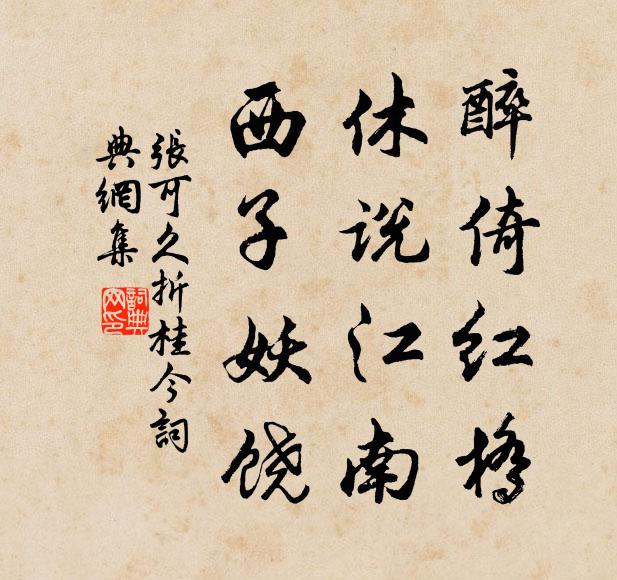 醉倚红橋
休说江南
西子妖饶
張可久折桂令詞
典網集
詞典
网印